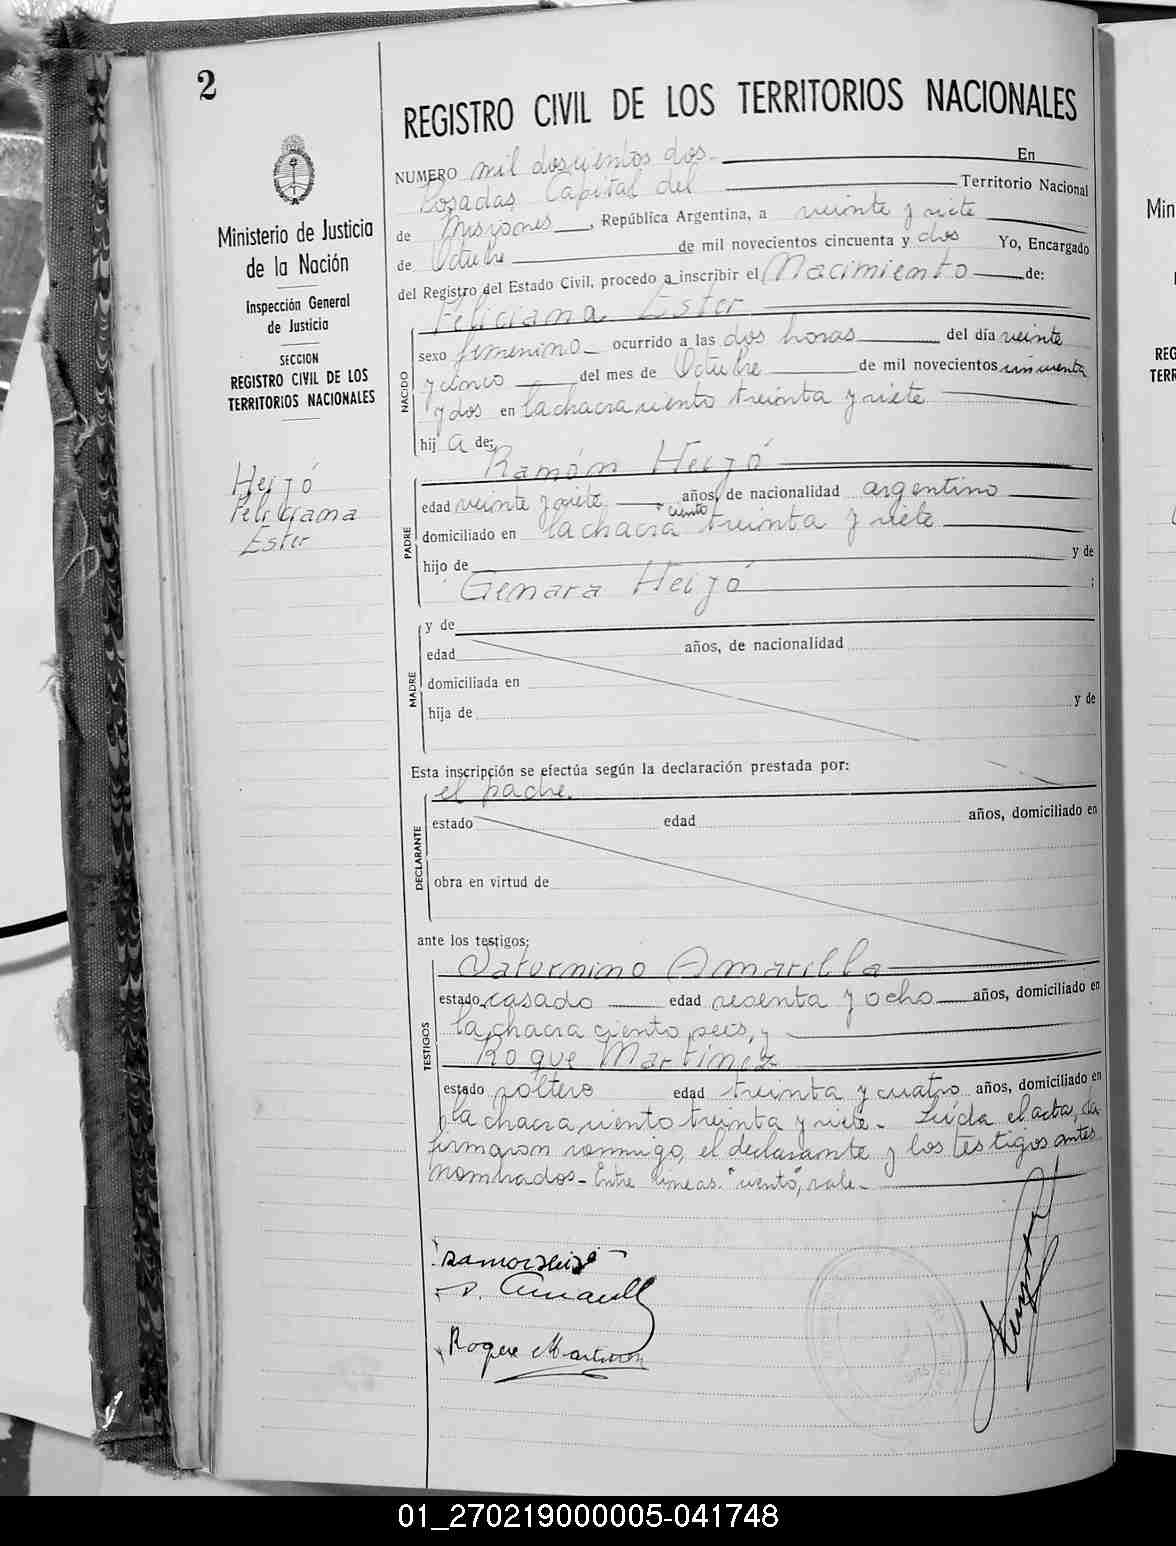 2
REGISTRO CIVIL DE LOS TERRITORIOS NACIONALES
Ministerio de Justicia
de la Nación
Inspección General
de Justicia
SECCION
REGISTRO CIVIL DE LOS
TERRITORIOS NACIONALES
Heijó
Feliciana
Ester
NUMERO mil doscientos dos En
Posadas Capital del Territorio Nacional
de Misiones, República Argentina, a veinte y siete
de Octubre de mil novecientos cincuenta y dos Yo, Encargado
del Registro del Estado Civil, procedo a inscribir el Nacimiento de:
Feliciana Ester
NACIDO
sexo femenino ocurrido a las dos horas del día veinte
y cinco del mes de Octubre de mil novecientos cincuenta
y dos en la chacra ciento treinta y siete
hij a de:
Ramón Heijó
PADRE
edad veinte y siete años, de nacionalidad argentino
ciento
domiciliado en la chacra treinta y siete
hijo de y de
Genara Heijó ;
MADRE
y de
edad años, de nacionalidad
domiciliada en
hija de y de
Esta inscripción se efectúa según la declaración prestada por:
el padre.
DECLARANTE
estado edad años, domiciliado en
obra en virtud de
ante los testigos:
TESTIGOS
Saturnino Amarilla
estado casado edad sesenta y ocho años, domiciliado en
la chacra ciento seis, y
Roque Martinez
estado soltero edad treinta y cuatro años, domiciliado en
la chacra ciento treinta y siete. Leída el acta, la
firmaron conmigo, el declarante y los testigos antes
nombrados - Entre líneas: "ciento", vale.
Ramon Heijó
S. Amarilla
Roque Martinez
Min
REG
TERR
01_270219000005-041748